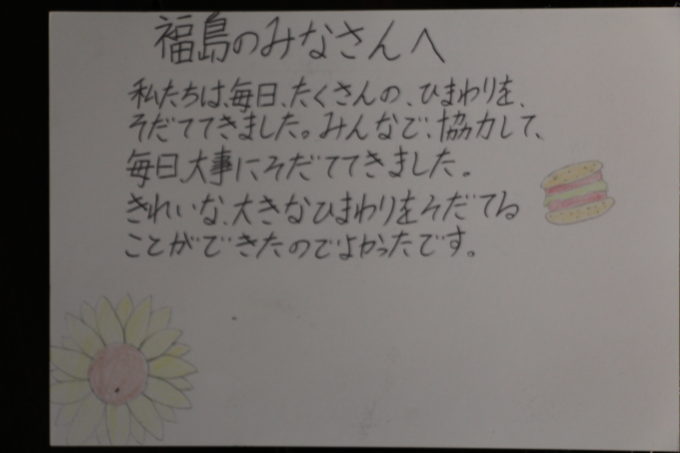 福島のみなさんへ
私たちは、毎日、たくさんの、ひまわりを、
そだててきました。みんなで、協力して、
毎日、大事にそだててきました。
きれいな、大きなひまわりをそだてる
ことができたのでよかったです。